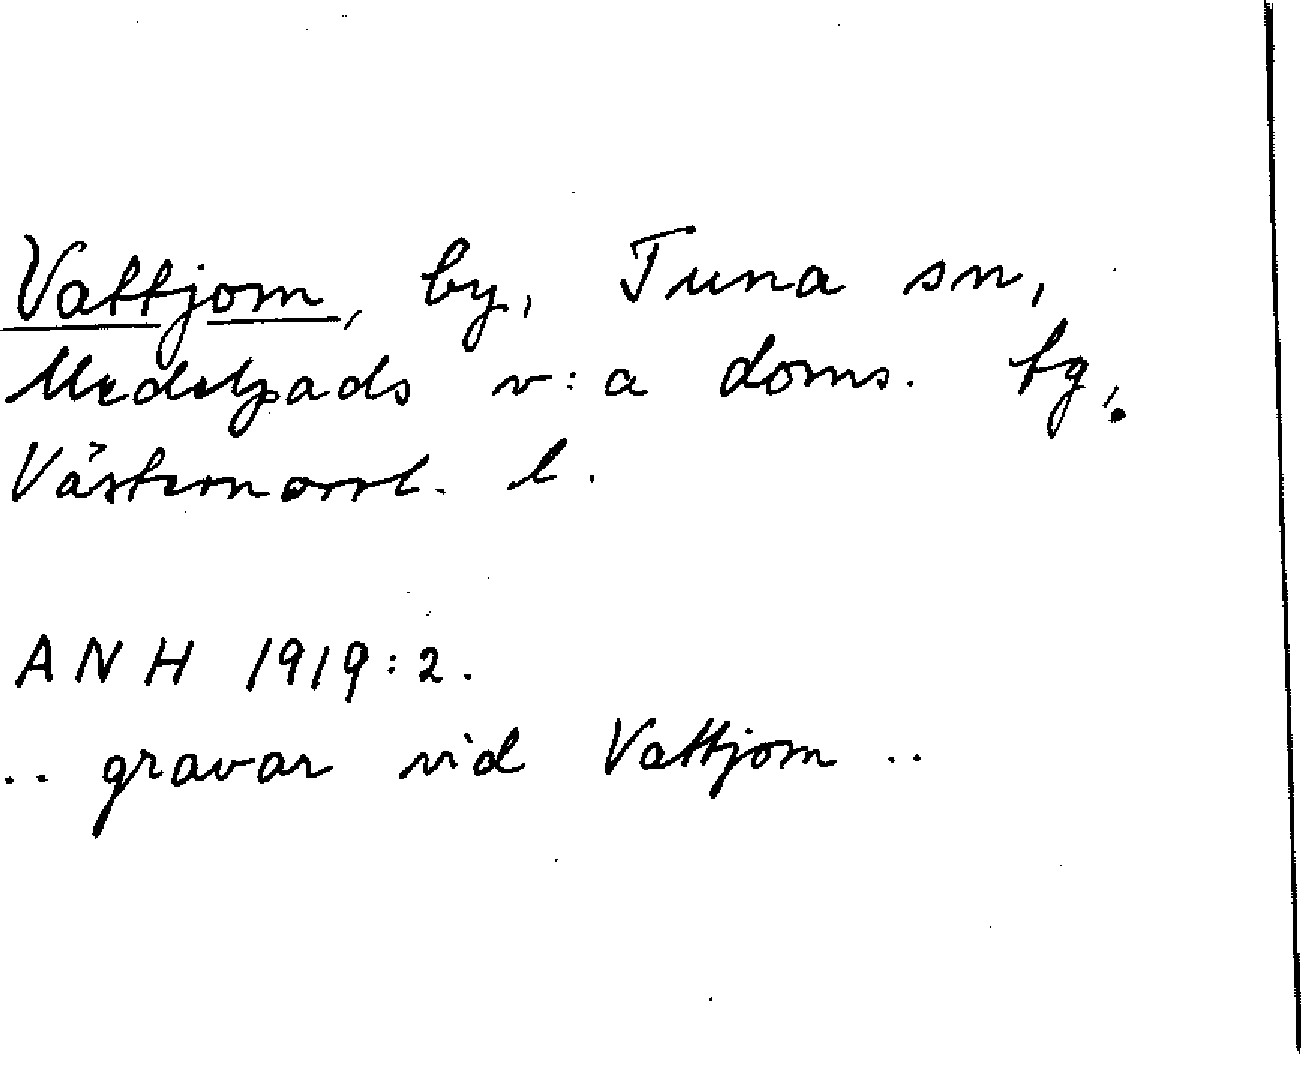 Vattjom, by, Tuna sn,
Medelpads v:a doms. tg,
Västernorrl. l.
ANH 1919:2.
.. gravar vid Vattjom ..